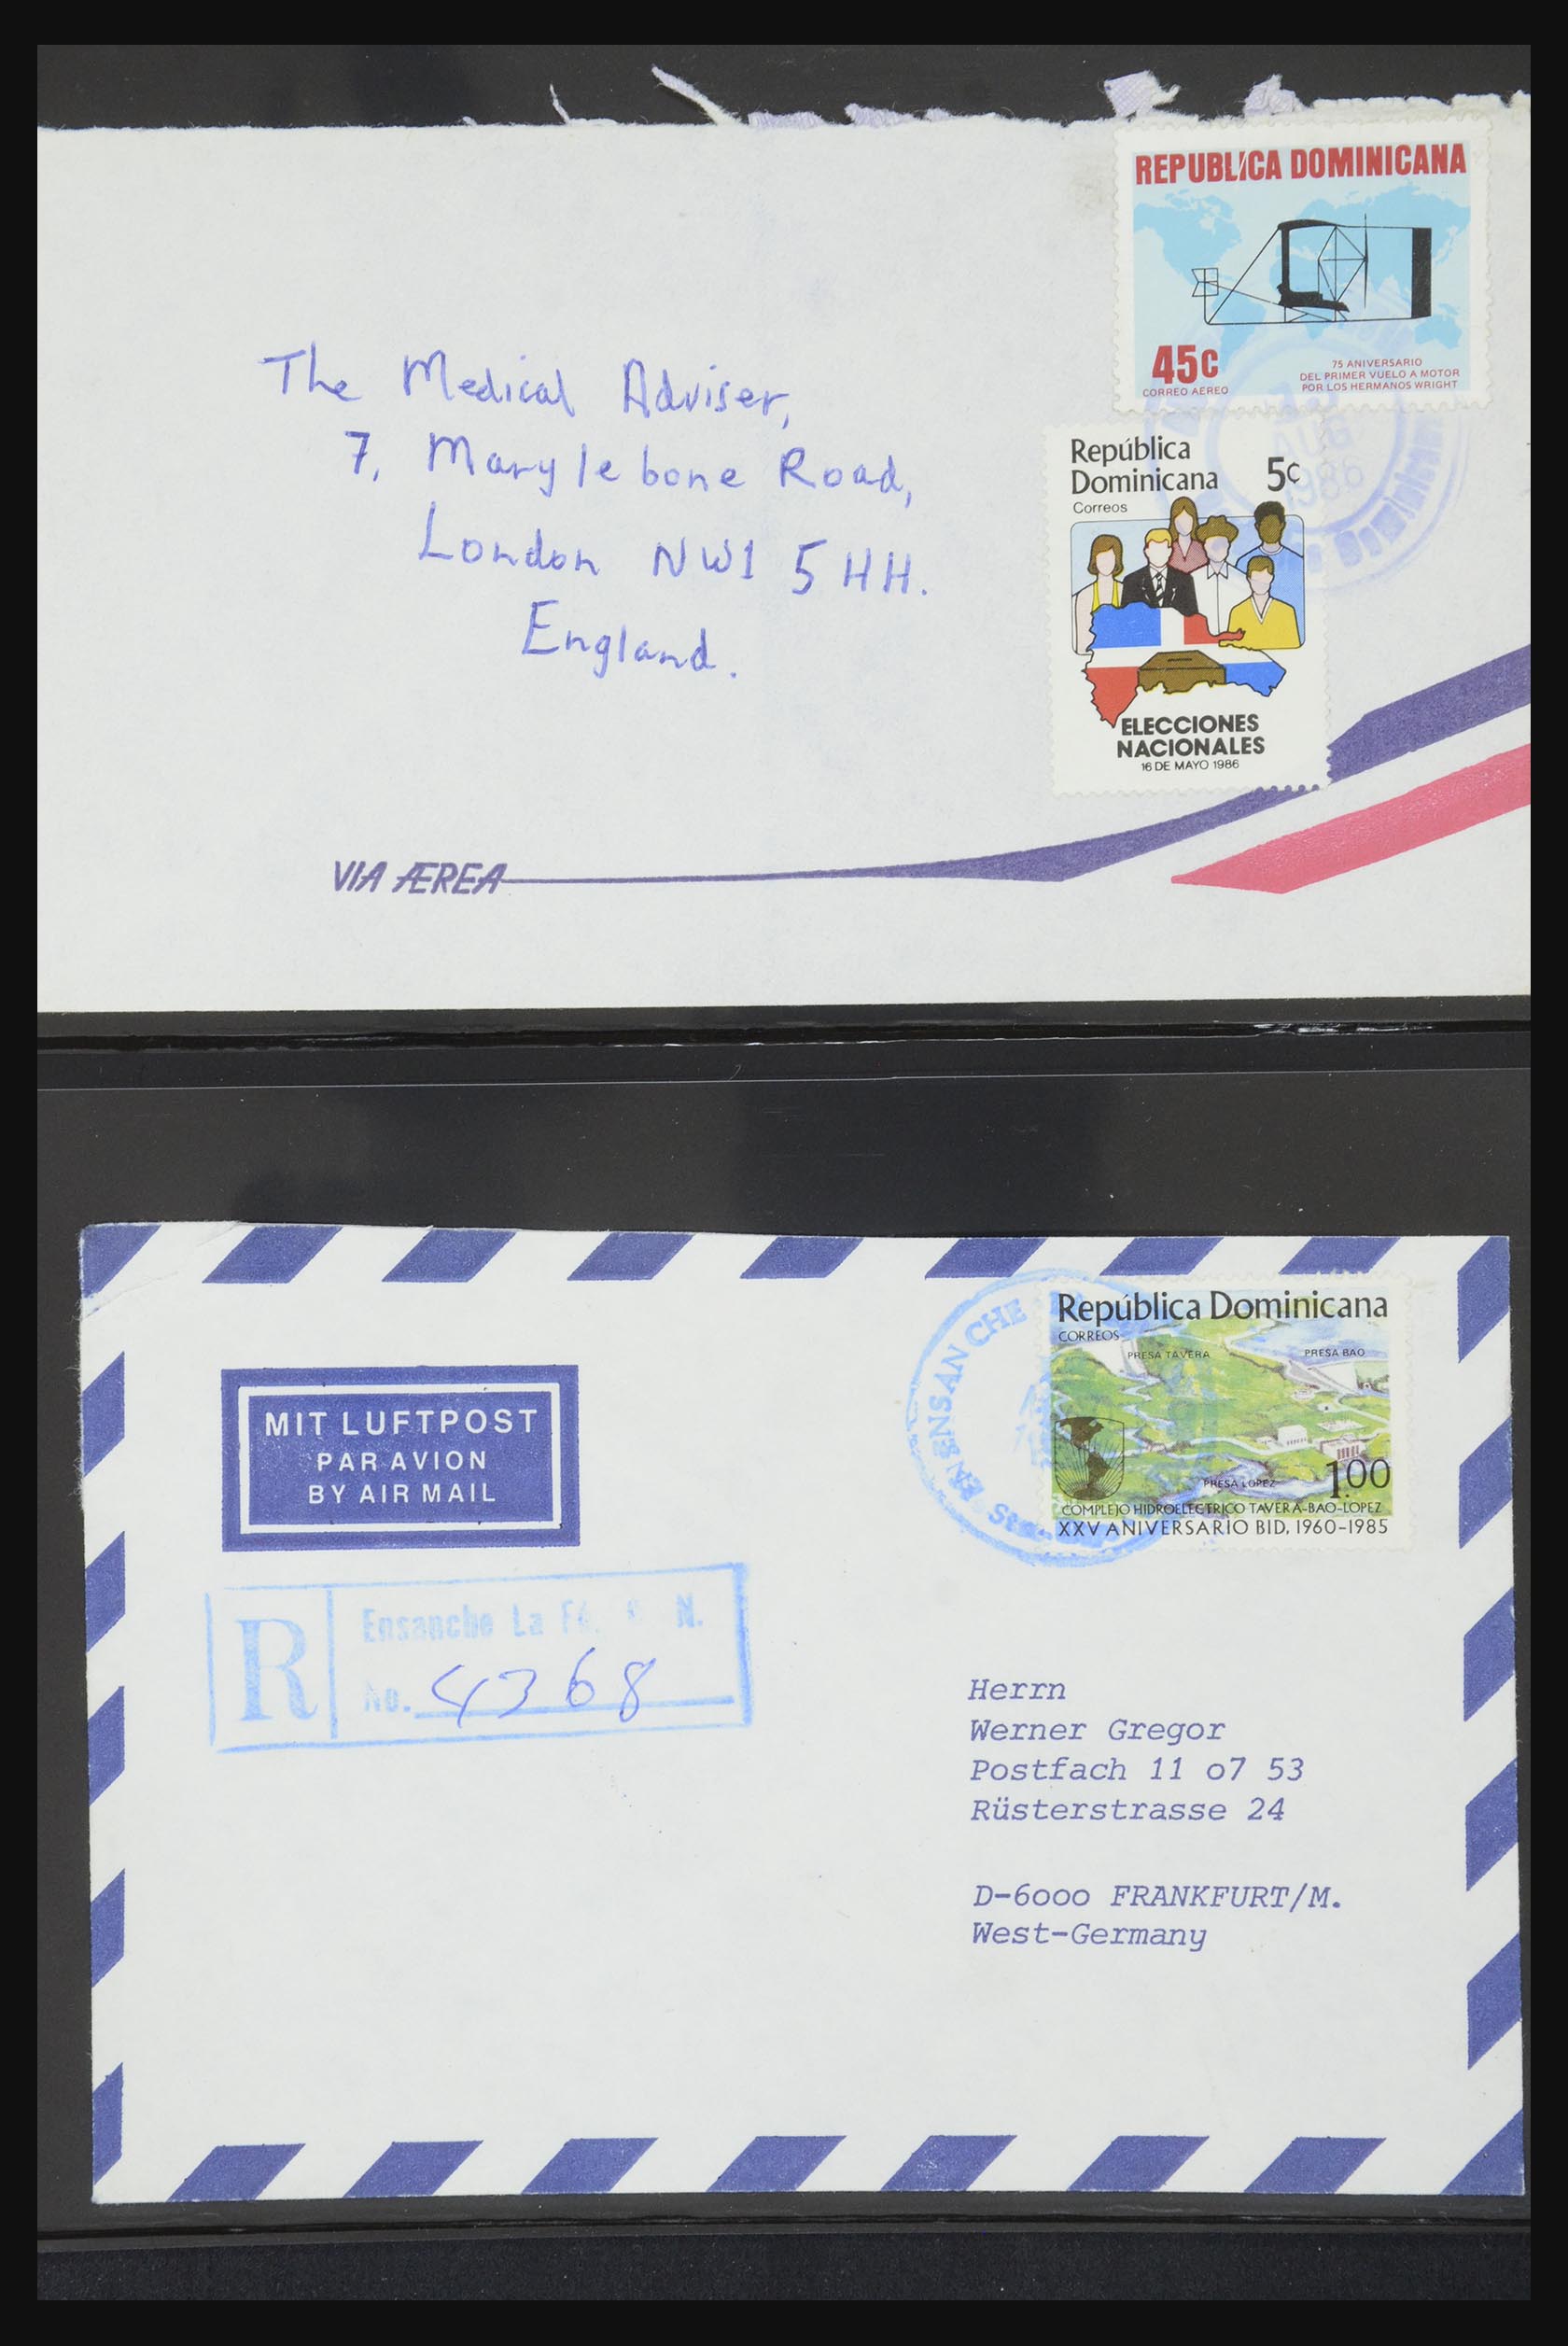 REPUBLICA DOMINICANA
45c
CORREO AEREO
75 ANIVERSARIO
DEL PRIMER VUELO A MOTOR
POR LOS HERMANOS WRIGHT
AUG
1986
The Medical Adviser,
7, Marylebone Road,
London NW1 5HH.
England.
República
Dominicana 5c
Correos
ELECCIONES
NACIONALES
16 DE MAYO 1986
VIA ÆREA
República Dominicana
CORREOS
PRESA TAVERA
PRESA BAO
PRESA LOPEZ
1.00
COMPLEJO HIDROELECTRICO TAVERA-BAO-LOPEZ
XXV ANIVERSARIO BID, 1960-1985
ENSANCHE
MIT LUFTPOST
PAR AVION
BY AIR MAIL
R
Ensanche La Fé, N.
No. 4368
Herrn
Werner Gregor
Postfach 11 o7 53
Rüsterstrasse 24
D-6ooo FRANKFURT/M.
West-Germany